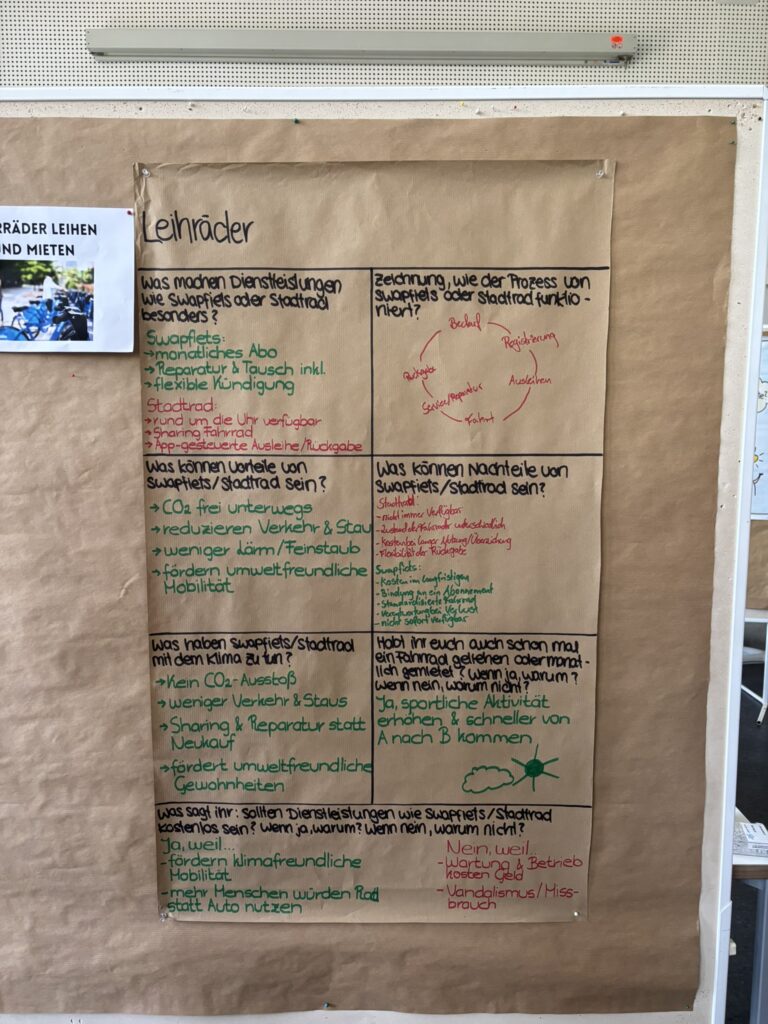 RRÄDER LEIHEN
ND MIETEN
Leihräder
Was machen Dienstleistungen
wie Swapfiets oder Stadtrad
besonders?
Swapfiets:
→monatliches Abo
→Reparatur & Tausch inkl.
→flexible Kündigung
Stadtrad:
→rund um die Uhr verfügbar
→Sharing Fahrrad
→App-gesteuerte Ausleihe/Rückgabe
Zeichnung, wie der Prozess von
Swapfiets oder Stadtrad funktio-
niert?
Bedarf
Registrierung
Ausleihen
Fahrt
Service/Reparatur
Rückgabe
Was können Vorteile von
Swapfiets/Stadtrad sein?
→ CO2 frei unterwegs
→ reduzieren Verkehr & Stau
→ weniger Lärm/Feinstaub
→ fördern umweltfreundliche
Mobilität
Was können Nachteile von
Swapfiets/Stadtrad sein?
Stadtrad:
- nicht immer verfügbar
- Zustand der Fahrräder unterschiedlich
- Kosten bei langer Nutzung/Überziehung
- Flexibilität der Rückgabe
Swapfiets:
- Kosten im langfristigen
- Bindung an ein Abonnement
- Standardisierte Fahrrad
- Verantwortung bei Verlust
- nicht sofort verfügbar
Was haben Swapfiets/Stadtrad
mit dem Klima zu tun?
→Kein CO2-Ausstoß
→weniger Verkehr & Staus
→ Sharing & Reparatur statt
Neukauf
→fördert umweltfreundliche
Gewohnheiten
Habt ihr euch auch schon mal
ein Fahrrad geliehen oder monat-
lich gemietet? Wenn ja, warum?
Wenn nein, warum nicht?
Ja, sportliche Aktivität
erhöhen & schneller von
A nach B kommen
Was sagt ihr: sollten Dienstleistungen wie Swapfiets/Stadtrad
kostenlos sein? Wenn ja, warum? Wenn nein, warum nicht?
Ja, weil...
- fördern klimafreundliche
Mobilität
- mehr Menschen würden Rad
statt Auto nutzen
Nein, weil...
- Wartung & Betrieb
kosten Geld
- Vandalismus/Miss-
brauch